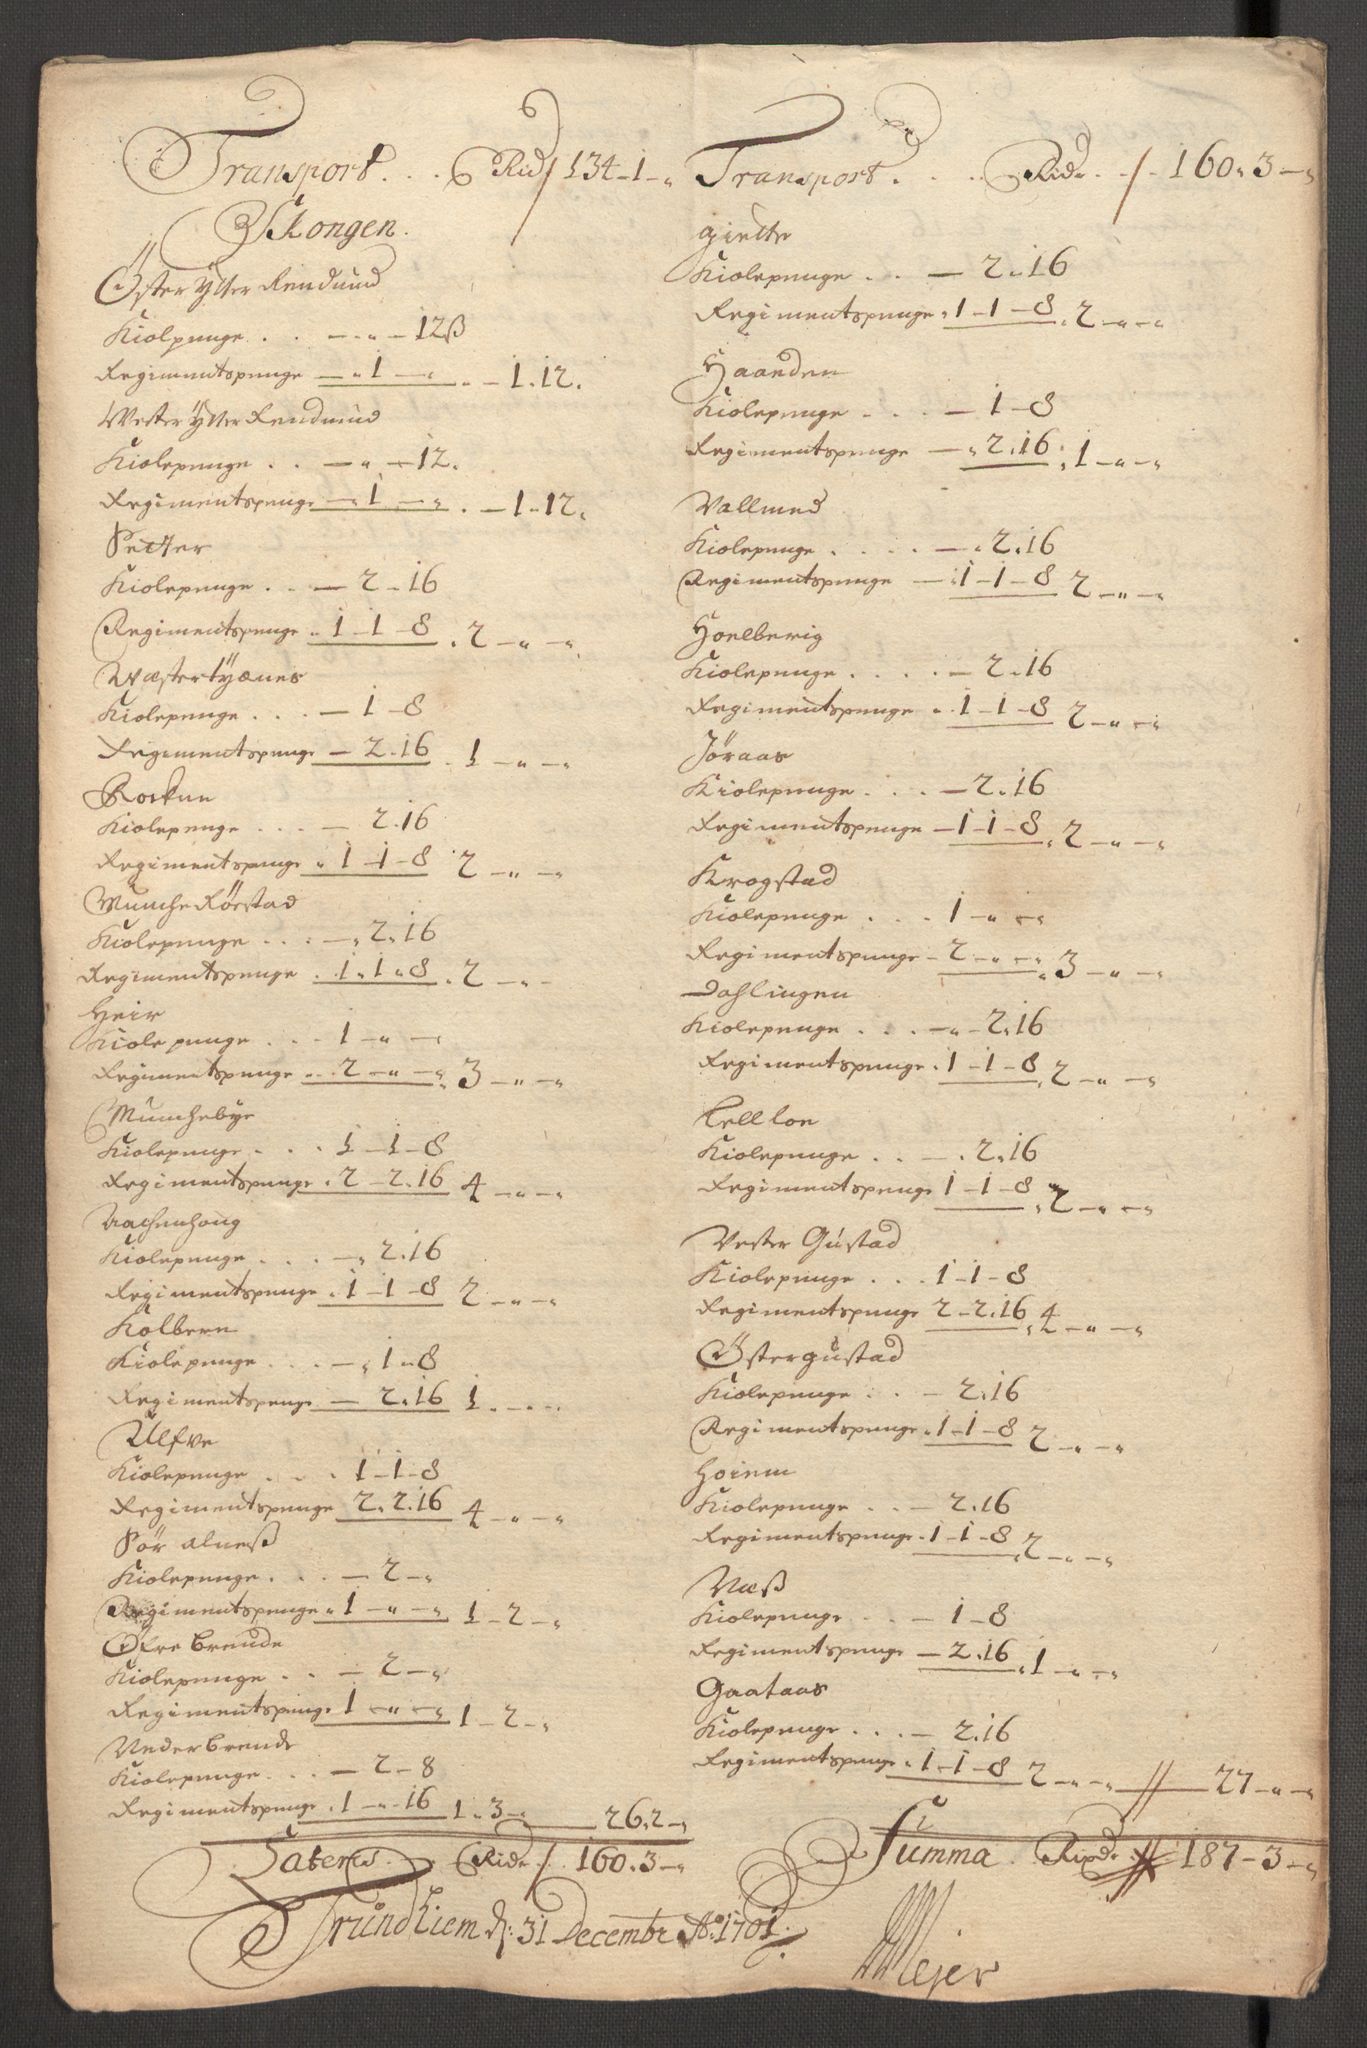 Transport . . . Rid / 134-1-"
Skongen.
Öster ytter Rendmid
Kiolpenge . . -"-12ß
Regimentspenge -"1-" -1.12.
Wester ytter Rendmid
Kiolepenge . . -"-12.
Regimentspenge -"1-" -1-12.
Setter
Kiolepenge . . -2-16
Regimentspenge "1-1-8 . 2-"-"
Wæstertyænes
Kiolepenge . . . -1-8
Regimentspenge -2.16 1-"-"
Rockne
Kiolepenge . . . - 2.16
Regimentspenge "1-1-8 2-"-"
Munche Rörstad
Kiolepenge . . . -"2.16
Regimentspenge . 1.1"8 . 2-"-
Heir
Kiolepenge . . . 1-"-"
Regimentspenge . . . 2-"-" 3-"-"
Munchebye
Kiolepenge . . . 1-1-8
Regimentspenge . 2-2.16 4-"-"
Kiolepenge . . . -"2.16
Regimentspenge . 1-1-8 2-"-"
Kolbern
Kiolepenge . . . -"1-8
Regimentspenge -2.16 1-"-"
Ulfve
Kiolepenge . . . 1-1-8
Regimentspenge 2.2.16 4-"-"
Sör alneß
Kiolepenge . . . -2-"
Regimentspenge "1-"-" 1-2-"
Øfre brende
Kiolepenge . . -2-"
Regimentspenge 1-"-" 1-2-"
Neder brende
Kiolepenge . . . -2-8
Regimentspenge . 1-"-16 1.3-" 26.2-"
Lateris. Ridr / 160.3-"
Transport . . . Ridr . / . 160.3-"
gielte
Kiolepenge . . -2.16
Regimentspenge "1-1-8 2-"-"
Haanden
Kiolepenge . . . -1-8
Regimentspenge -"2.16 1-"-"
Vallmed
Kiolepenge . . . . -"2.16
Regimentspenge -1-1-8 2-"-"
Hoelberig
Kiolepenge . . . . -2.16
Regimentspenge . 1-1-8 2-"-"
Jöraas
Kiolepenge . . . -2.16
Regimentspenge -1-1-8 2-"-"
Krogstad
Kiolepenge . . . 1-"-"
Regimentspenge -2-"-" 3-"-"
Dahlingen
Kiolepenge . . . -"-2.16
Regimentspenge . 1-1-8 2-"-"
Kiolepenge . . -.2.16
Regimentspenge 1-1-8 2-"-"
Vester Gustad
Kiolepenge . . . 1-1-8
Regimentspenge 2-2.16 4-"-"
Östergustad
Kiolepenge . . -2.16
Regimentspenge "1-1-8 2-"-"
Hoiem
Kiolepenge . . -2.16
Regimentspenge . 1-1-8 2-"-"
Næß
Kiolepenge . . . -1-8
Regimentspenge -2.16 1-"-"
Gaataas
Kiolepenge . . . -2.16
Regimentspenge "1-1-8 2-"-" // 27-"-"
Summa Rixdr // 187-3-"
Trundhiem d: 31 Decembr Ao: 1701.
Mejer